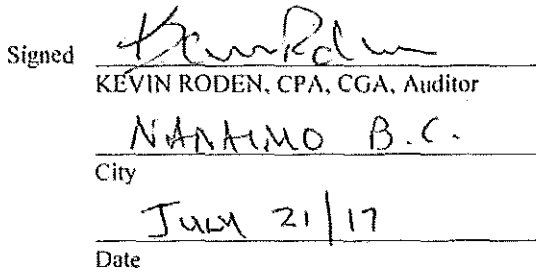 Signed
KEVIN RODEN, CPA, CGA, Auditor
NANAIMO B.C.
City
JULY 21/17
Date